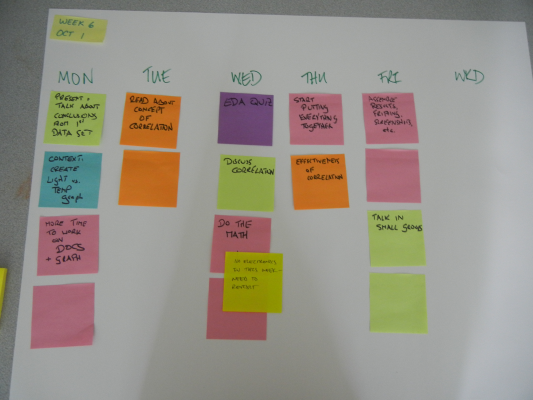 WEEK 6
OCT 1
MON
TUE
WED
THU
FRI
WKD
PRESENT +
TALK ABOUT
CONCLUSIONS
FROM 1ST
DATA SET
CONTEXT:
CREATE
LIGHT vs.
TEMP
graph
MORE TIME
TO WORK
ON
DOCS
+ GRAPH
READ ABOUT
CONCEPT
OF
CORRELATION
EDA QUIZ
DISCUSS
CORRELATION
DO THE
MATH
IN THIS WEEK
NEED TO
START
PUTTING
EVERYTHING
TOGETHER
EFFECTIVENESS
OF
CORRELATION
RESULTS
etc.
TALK IN
SMALL GROUPS